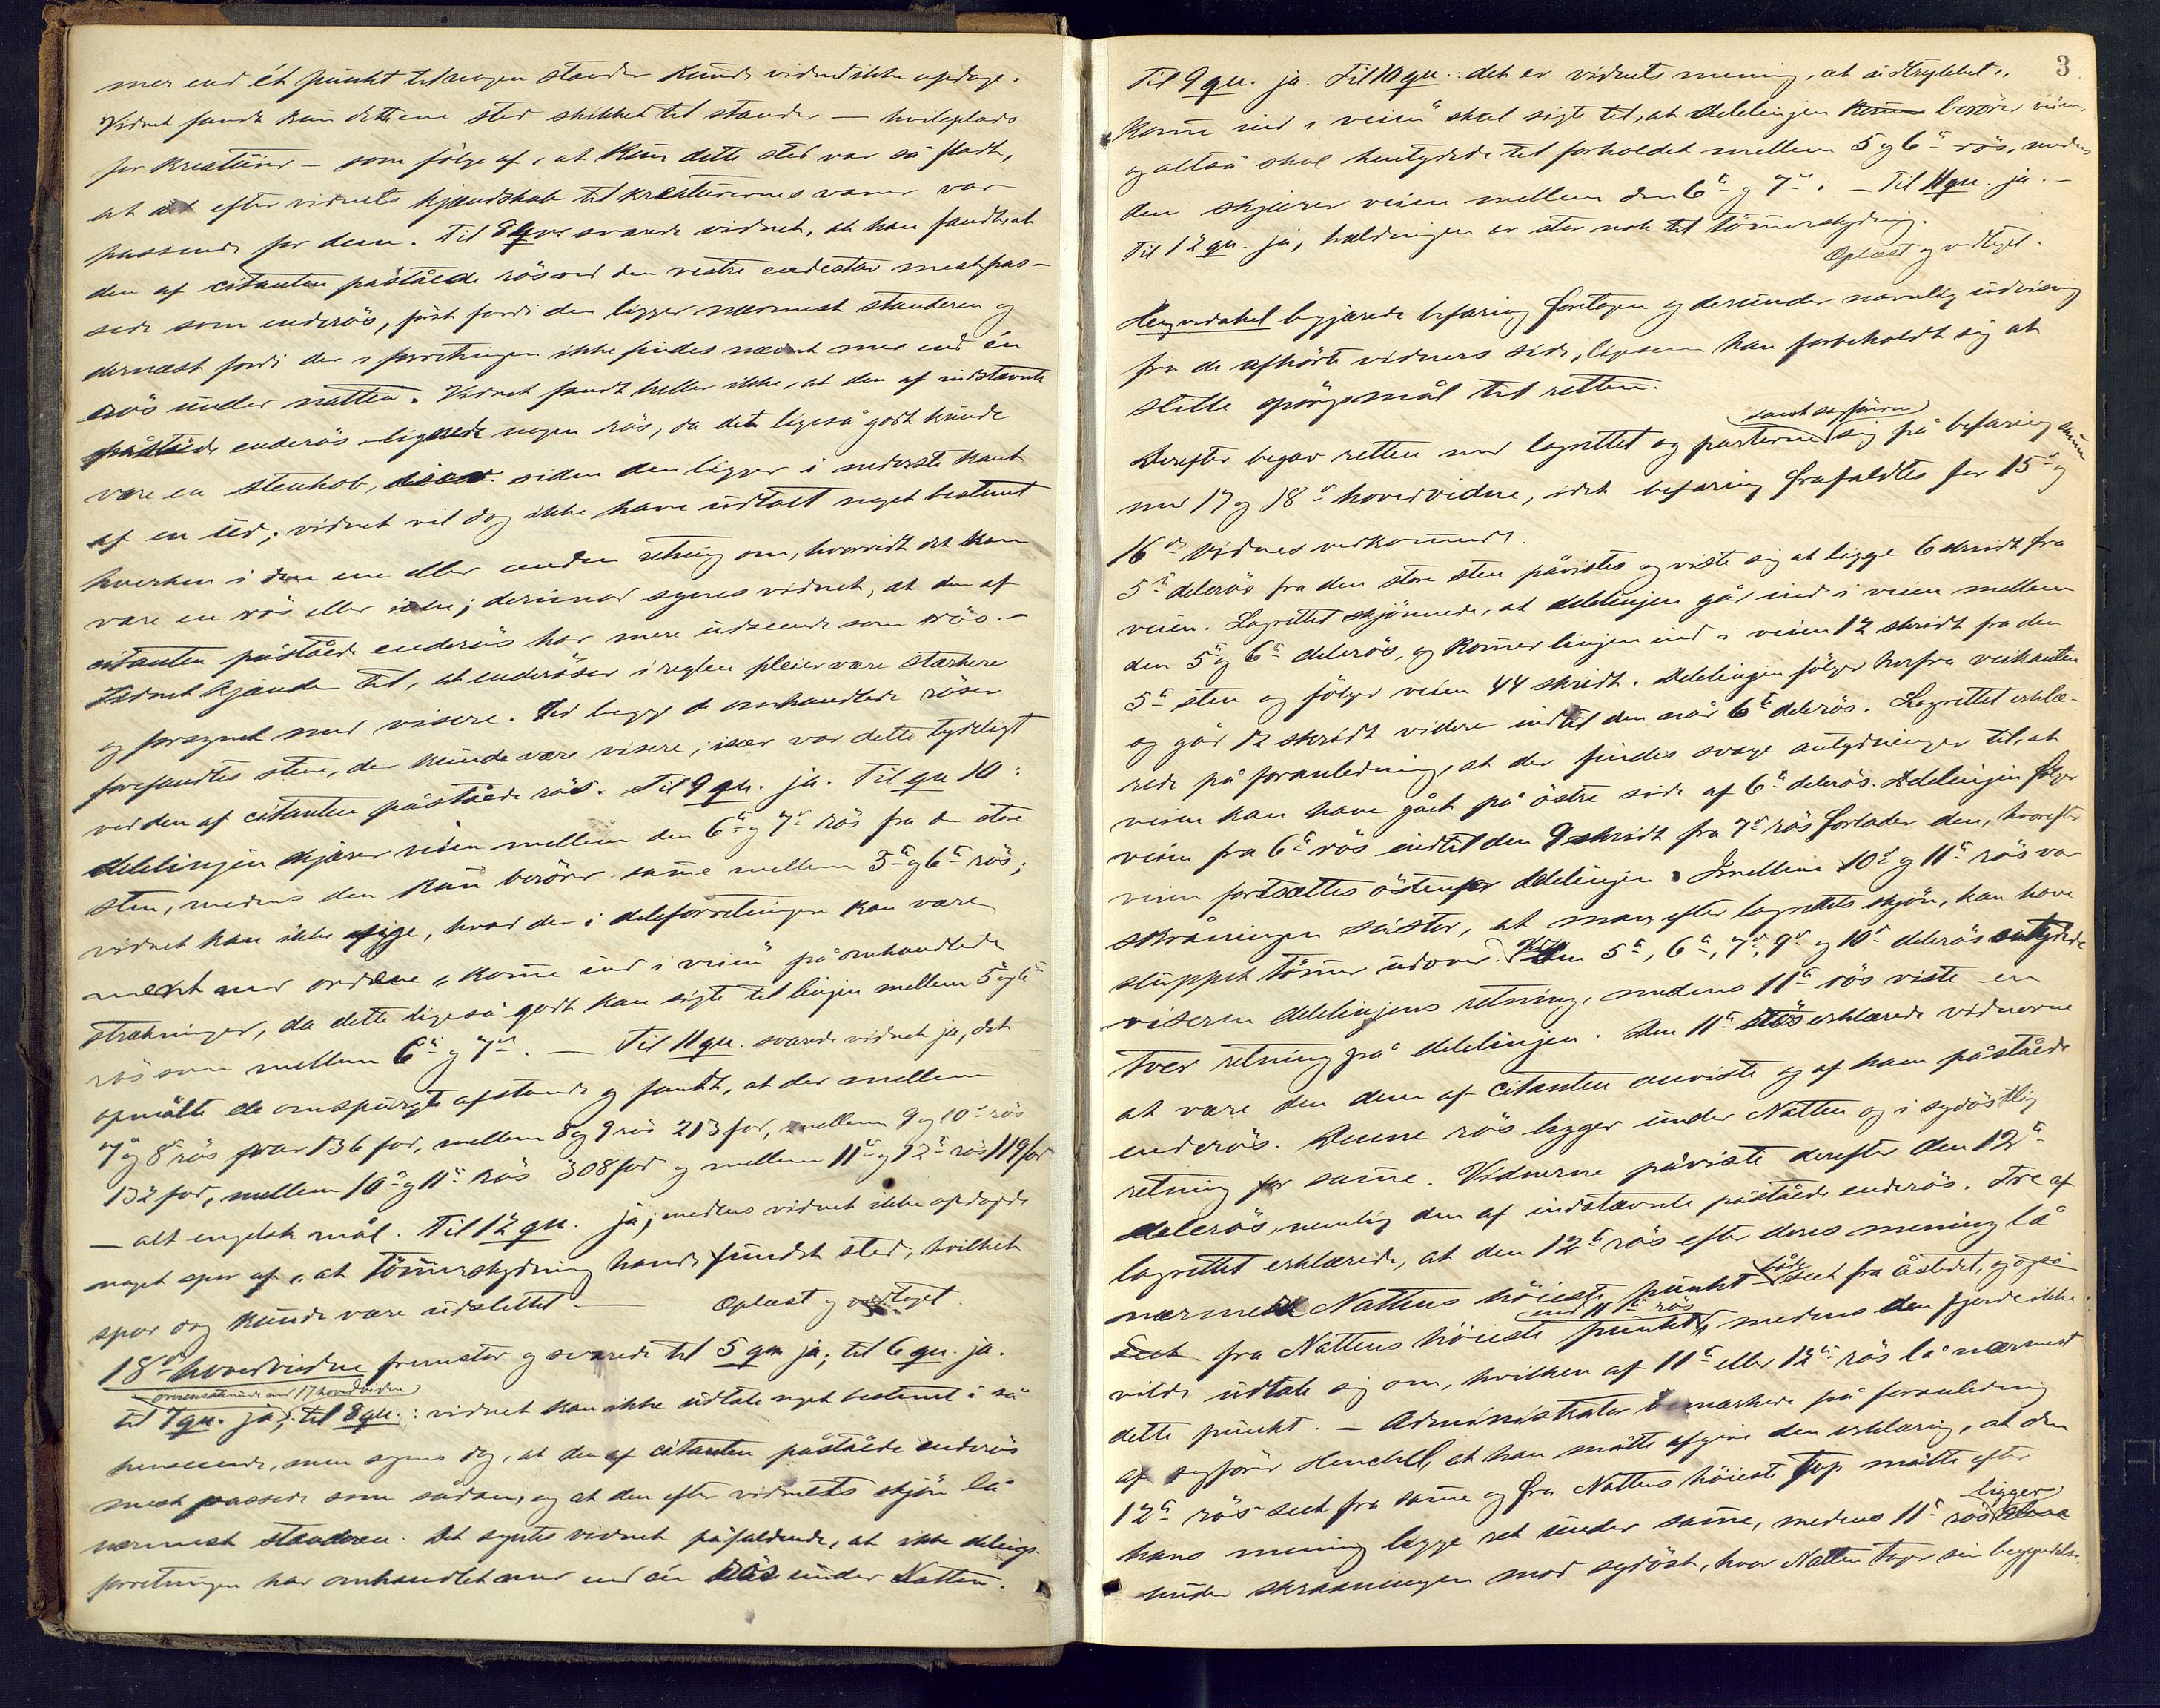 mer end ét punkt til nogen stander kunde vidnet ikke opdage.
Vidnet fandt kun dette ene sted skikket til stander — hvileplads
for kreaturer — som følge af, at kun dette sted var så fladt,
at det efter vidnets kjendskab til kreaturernes vaner var
passende for dem. Til 8 qu. svarede vidnet, at han fandt, at
den af citanten påståede rös ved den vestre endestav mest pas-
sede som enderös, först fordi den ligger nærmest standeren og
dernæst fordi der i forretningen ikke findes nævnt mer end én
rös under natten. Vidnet fandt heller ikke, at den af indstævnte
påståede enderös lignede nogen rös, da det ligeså godt kunde
være en stenhob, siden den ligger i nederste kant
af en ur; vidnet vil dog ikke have udtalt noget bestemt
hverken i den ene eller anden retning om, hvorvidt det kan
være en rös eller ikke; derimod synes vidnet, at den af
citanten påståede enderös har mere udseende som rös. —
Vidnet kjender til, at enderöser i reglen pleier være stærkere
og forsynet med visere. Ved begge de omhandlede röser
forefandtes stene, der kunde være visere; især var dette tydeligt
ved den af citanten påståede rös. Til 9 qu. ja. Til qu 10:
delelinjen skjærer veien mellem den 6te og 7de rös fra den store
sten, medens den kun berörer samme mellem 5te og 6te rös;
vidnet kan ikke sige, hvad der i deleforretningen kan være
ment med ordene „komme ind i veien" på omhandlede
strækninger, da dette ligeså godt kan sigte til linjen mellem 5te og 6te
rös som mellem 6te og 7de. — Til 11 qu. svarede vidnet ja, det
opmålte de omspurgte afstande og fandt, at der mellem
7de og 8de rös var 136 fod, mellem 8 og 9 rös 213 fod, mellem 9 og 10de rös
132 fod, mellem 10de og 11te rös 308 fod og mellem 11te og 12te rös 119 fod
— alt engelsk mål. Til 12 qu. ja; medens vidnet ikke opdagede
noget spor af, at tömmerskydning havde fundet sted, hvilket
spor dog kunde være udslettet. — Oplæst og vedtaget.
18de hovedvidne fremstod og svarede til 5 qu ja; til 6 qu. ja.
overensstemmende med 17 hovedvidne
til 7 qu. ja; til 8 qu.: vidnet kan ikke udtale noget bestemt i så
henseende, men synes dog, at den af citanten påståede enderös
mest passede som sådan, og at den efter vidnets skjön lå
nærmest standeren. Det syntes vidnet påfaldende, at ikke delings-
forretningen har omhandlet mer end én rös under Natten.
3
Til 9 qu. ja. Til 10 qu.: det er vidnets mening, at udtrykket „
komme ind i veien" skal sigte til, at delelinjen berörer veien,
og altså skal hentydede til forholdet mellem 5 og 6te rös, medens
den skjærer veien mellem den 6te og 7de. — Til 11 qu. ja. —
Til 12 qu. ja, hældningen er stor nok til tömmerskydning.
Oplæst og vedtaget.
begjærede befaring foretagen og derunder navnlig udvisning
fra de afhörte vidners side, ligesom han forbeholdt sig at
stille spörgsmål til retten.
samt sagförerne
Derefter begav retten med lagrettet og parterne sig på befaring
med 17 og 18de hovedvidne, idet befaring frafaldtes for 15de og
16de vidnes vedkommende.
5te delerös fra den store sten påvistes og viste sig at ligge 6 skridt fra
veien. Lagrettet skjönnede, at delelinjen går ind i veien mellem
den 5te og 6te delerös, og kommer linjen ind i veien 12 skridt fra den
5te sten og fölger veien 44 skridt. Delelinjen fölger herfra veikanten
og går 12 skridt videre indtil den når 6te delerös. Lagrettet erklæ-
rede på foranledning, at der findes svage antydninger til, at
veien kan have gået på östre side af 6te delerös. Delelinjen fölger
veien fra 6te rös indtil den 9 skridt fra 7de rös forlader den, hvorefter
veien fortsættes östenfor delelinjen. Imellem 10de og 11te rös var
skråningen sådan, at man efter lagrettets skjön, kan have
sluppet tömmer udover. Ved den 5te, 6te, 7de, 9de og 10de delerös antydede
viseren delelinjens retning, medens 11te rös viste en
tver retning på delelinjen. Den 11te rös erklærede vidnerne
at være den dem af citanten anviste og af ham påståede
enderös. Denne rös ligger under Natten og i sydöstlig
retning for samme. Vidnerne påviste derefter den 12te
delerös, nemlig den af indstævnte påståede enderös. Tre af
lagrettet erklærede, at den 12te rös efter deres mening lå
nærmest Nattens höieste punkt både seet fra åstedet, og også
end 11te rös
seet fra Nattens höieste punkt, medens den fjerde ikke
vilde udtale sig om, hvilken af 11te eller 12te rös lå nærmest
dette punkt. — Administrator bemærkede på foranledning
af sagförer Henchel, at han måtte afgive den erklæring, at den
12te rös seet fra samme og fra Nattens höieste top måtte efter
ligger
hans mening ligge ret under samme, medens 11te rös
under skråningen mod sydöst, hvor Natten tager sin begyndelse.